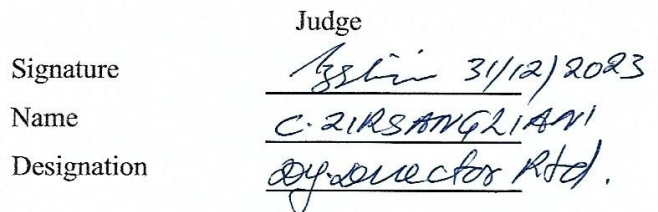 Judge
Signature 31/12/2023
Name C. ZIRSANGLIANI
Designation Dy. Director Rtd.